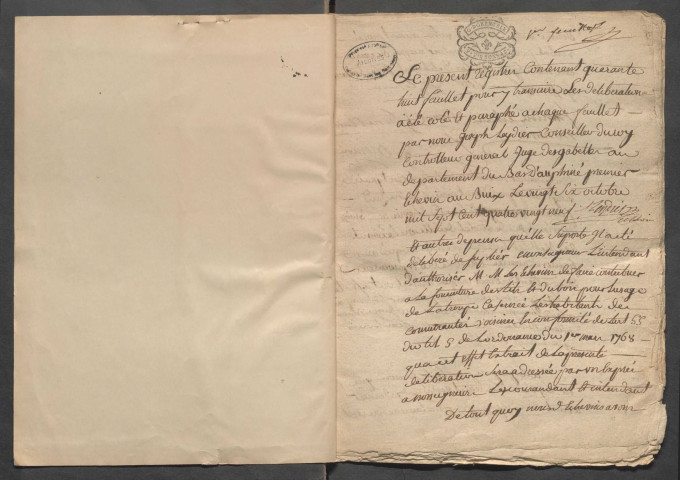 1er feuillet
Le present registre contenant quarante
huit feuillet pour y transcrire les deliberation
a été coté et paraphé a chaque feuillet
par nous Joseph Leydier Conseiller du roy
Controlleur general Juge des gabelles au
departement du Bas dauphiné premier
Echevin au Buix le vingt six octobre
mil sept cent quatre vingt neuf
Et autres depenses qu'elle suporte Il a été
deliberé de suplier monseigneur L'intendant
d'authoriser M M les Echevins de faire contribuer
a la fourniture des lits et du bois pour l'usage
de la troupe casernée les habitants de
communautés voisines En conformité de l'art 55
du tit 5 de Lordonnance du 1er mars 1768
qua cet effet Extrait de la presente
deliberation sera adressée par
a nosseigneurs Les commandant et intendant
De tout quoy nous d Echevins avons